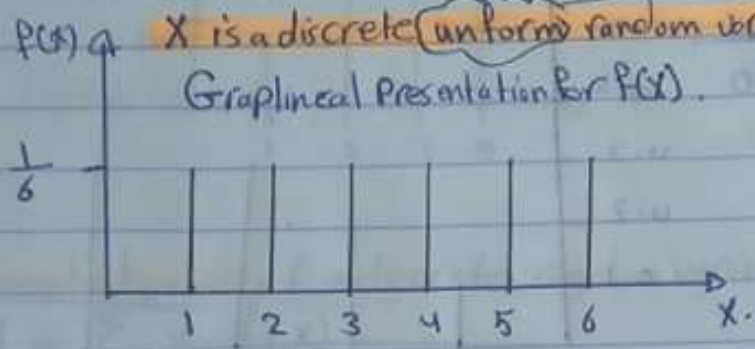 f(x) X is a discrete (unform) random
Graplineal Presentation for f(x).
1/6
1 2 3 4 5 6 X.